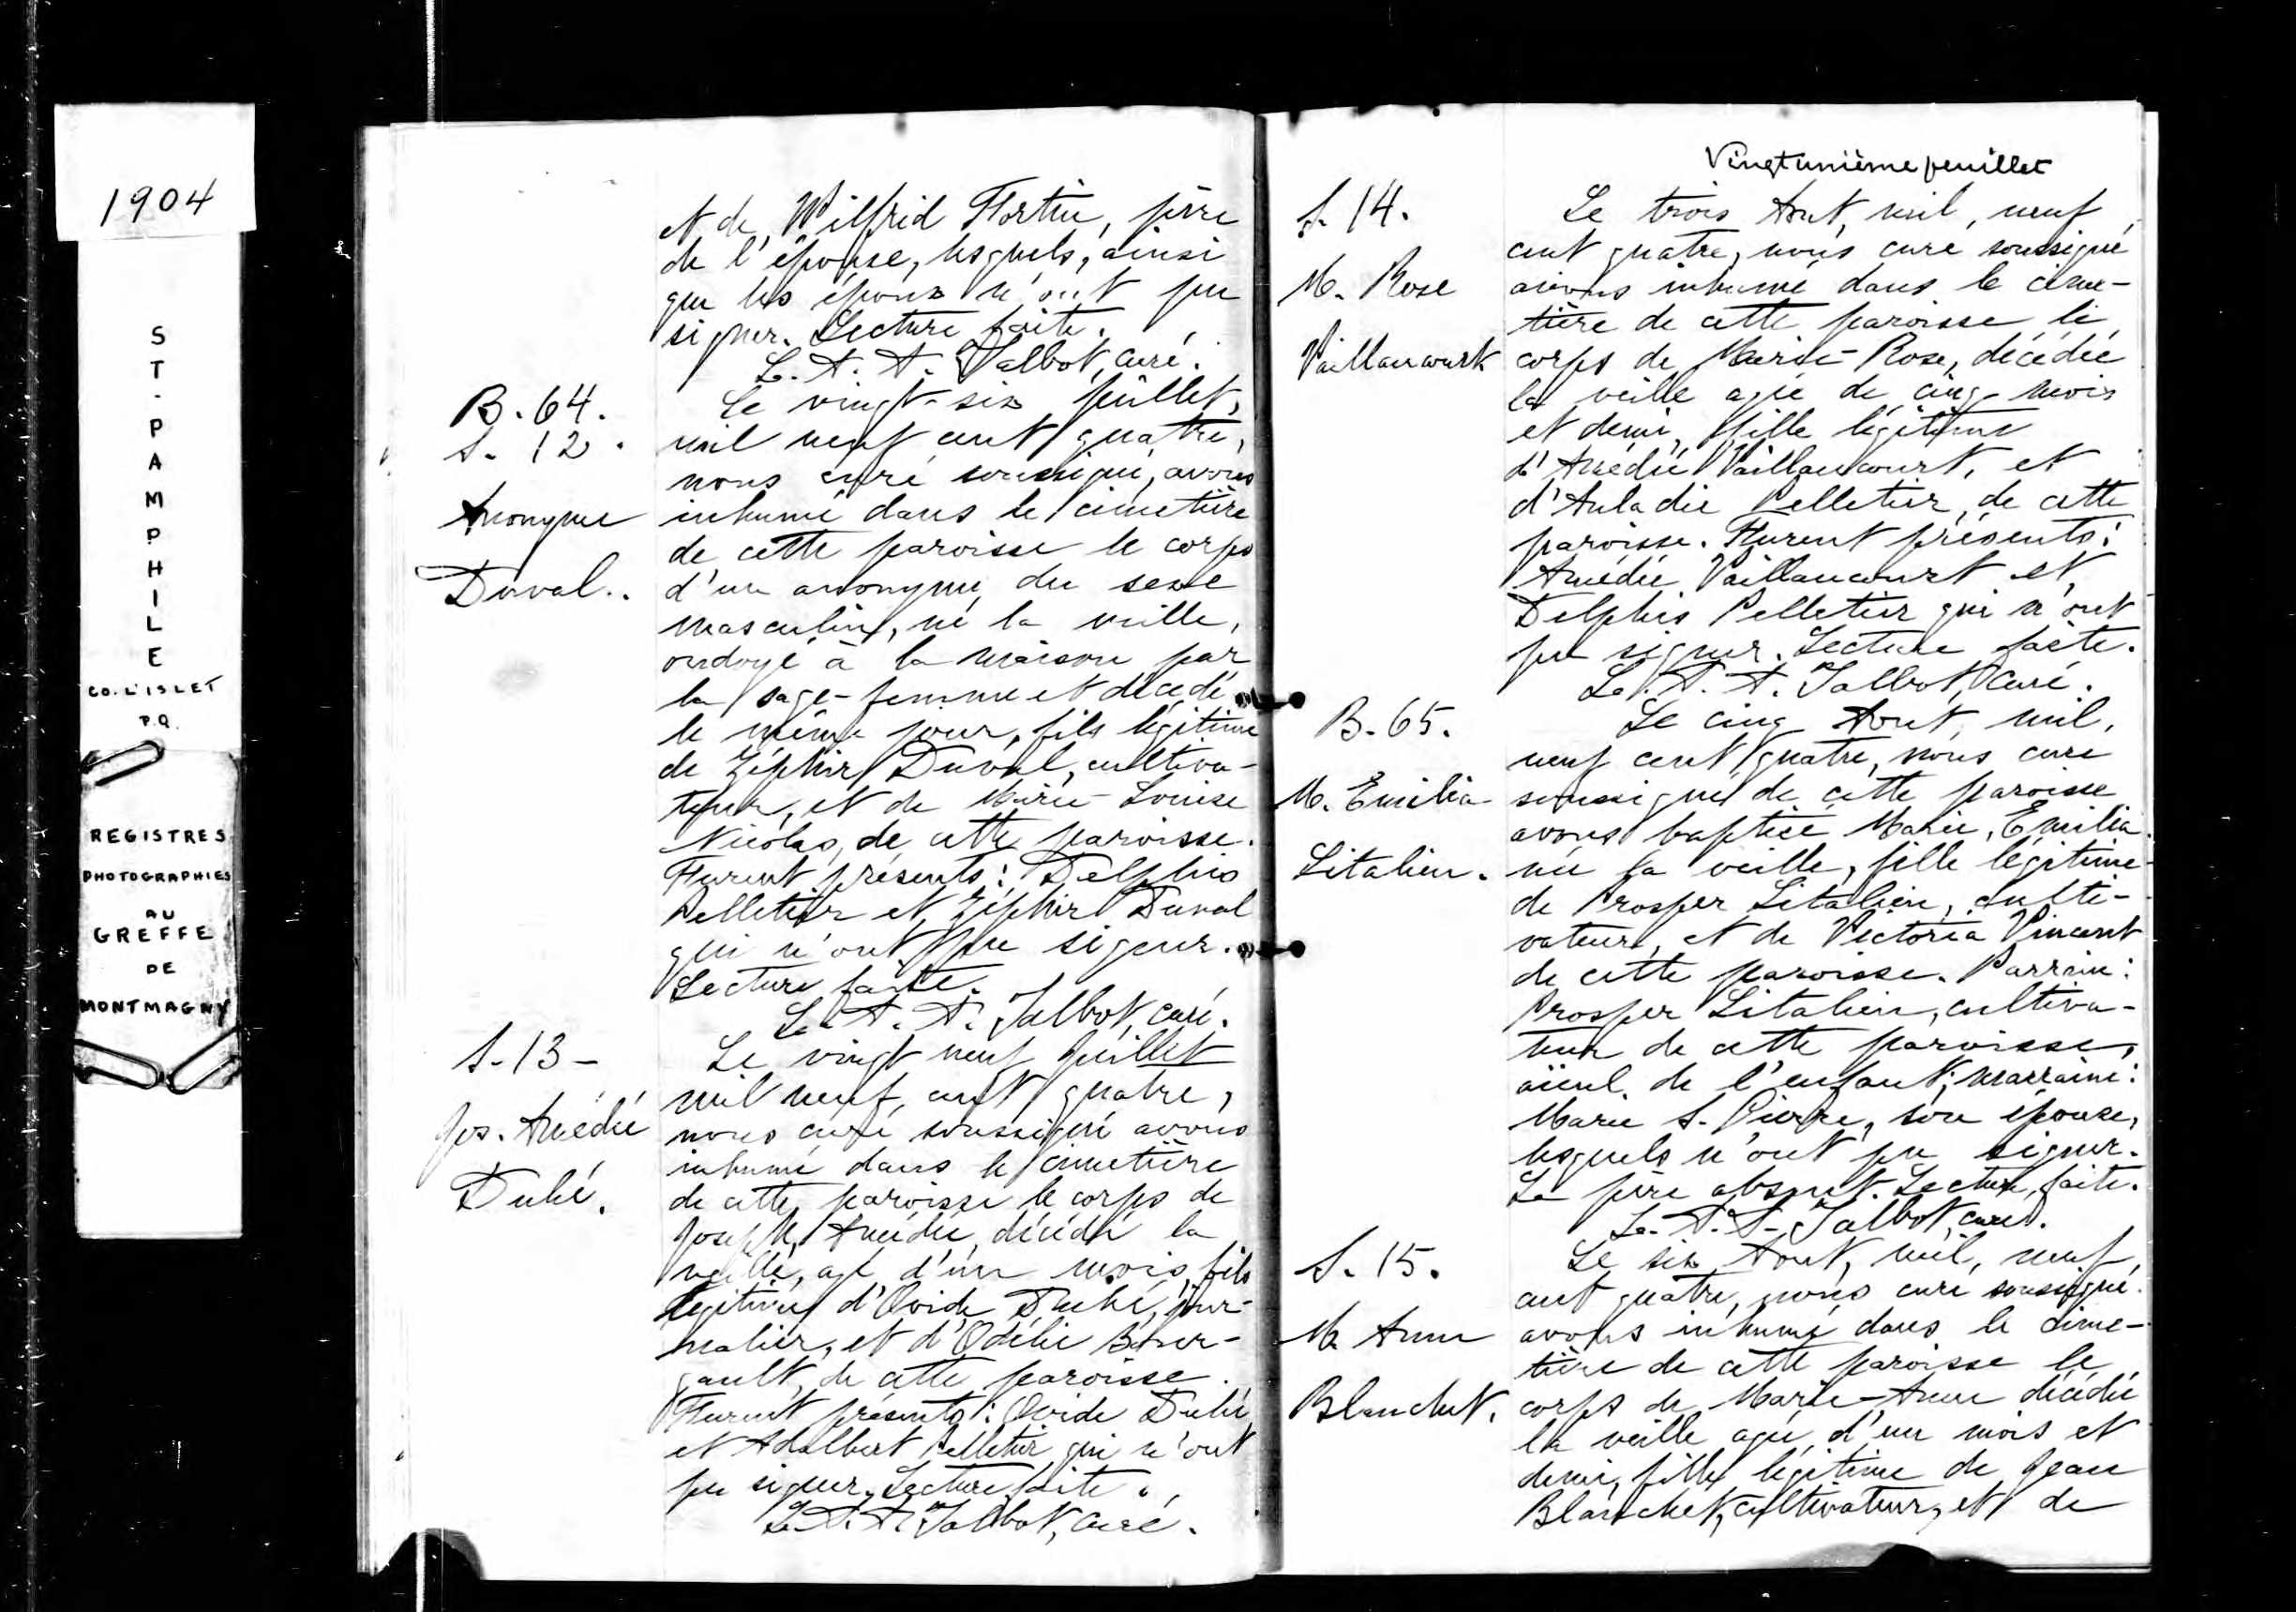 1904
ST-PAMPHILE
CO. L'ISLET
P.Q.
REGISTRES
PHOTOGRAPHIES
AU
GREFFE
DE
MONTMAGNY
et de Wilfrid Fortin, père
de l'épouse, lesquels, ainsi
que les époux n'ont pu
signer. Lecture faite.
L. A. A. Talbot, curé.
B. 64.
S. 12.
Anonyme
Duval.
Le vingt-six juillet,
mil neuf cent quatre,
nous curé soussigné, avons
inhumé dans le cimetière
de cette paroisse le corps
d'un anonyme du sexe
masculin, né la veille,
ondoyé à la maison par
la sage-femme et décédé
le même jour, fils légitime
de Zéphir Duval, cultiva-
teur, et de Marie-Louise
Nicolas, de cette paroisse.
Furent présents: Delphis
Pelletier et Zéphir Duval
qui n'ont pu signer.
Lecture faite.
L. A. A. Talbot, curé.
S. 13 -
Jos. Amédé
Dubé.
Le vingt neuf Juillet
mil neuf cent quatre,
nous curé soussigné avons
inhumé dans le cimetière
de cette paroisse le corps de
Joseph Amédée, décédé la
veille, agé d'un mois, fils
légitime d'Ovide Dubé, jour-
nalier, et d'Odélie
gault, de cette paroisse.
Furent présents: Ovide Dubé
et Adalbert Pelletier qui n'ont
pu signer. Lecture faite.
L. A. A. Talbot, curé.
Vingtunième feuillet
S. 14.
M. Rose
Vaillancourt
Le trois Aout, mil, neuf
cent quatre, nous curé soussigné
avons inhumé dans le cime-
tière de cette paroisse le
corps de Marie-Rose, décédée
la veille agée de cinq mois
et demi, fille légitime
d'Amédée Vaillancourt, et
d'Auladie Pelletier, de cette
paroisse. Furent présents:
Amédée Vaillancourt et
Delphis Pelletier qui n'ont
pu signer. Lecture faite.
L. A. A. Talbot, curé.
B. 65.
M. Emilia
Litalien.
Le cinq Aout, mil,
neuf cent quatre, nous curé
soussigné de cette paroisse
avons baptisé Marie, Emilia
née la veille, fille légitime
de Prosper Litalien, culti-
vateur, et de Victoria Vincent
de cette paroisse. Parrain:
Prosper Litalien, cultiva-
teur de cette paroisse,
aïeul de l'enfant; marraine:
Marie S. Pierre, son épouse,
lesquels n'ont pu signer.
Le père absent. Lecture faite.
L. A. A. Talbot, curé.
S. 15.
M. Anne
Blanchet.
Le six Aout, mil, neuf
cent quatre, nous curé soussigné
avons inhumé dans le cime-
tière de cette paroisse le
corps de Marie-Anne décédée
la veille agée d'un mois et
demi, fille légitime de Jean
Blanchet, cultivateur, et de